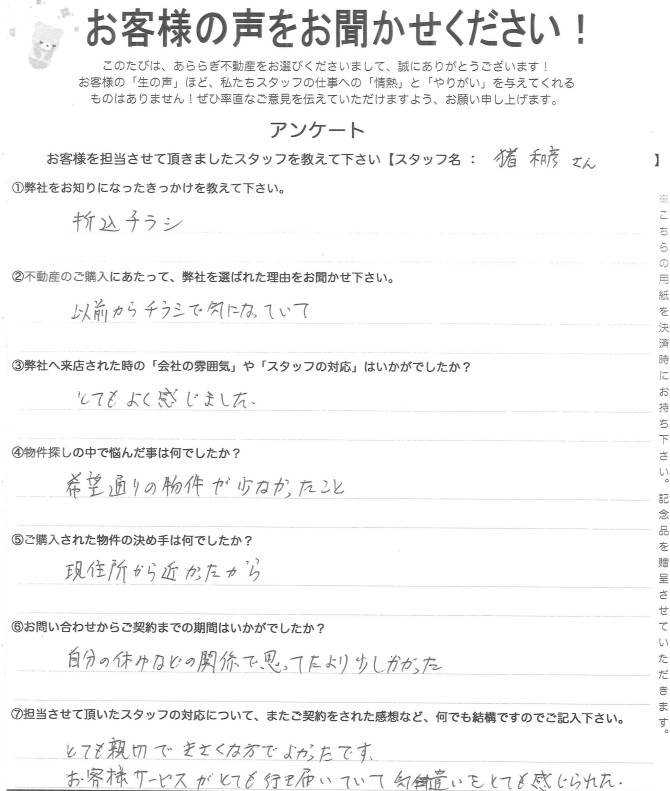 お客様の声をお聞かせください！
このたびは、あららぎ不動産をお選びくださいまして、誠にありがとうございます！
お客様の「生の声」ほど、私たちスタッフの仕事への「情熱」と「やりがい」を与えてくれる
ものはありません！ぜひ率直なご意見を伝えていただけますよう、お願い申し上げます。
アンケート
お客様を担当させて頂きましたスタッフを教えて下さい【スタッフ名： 猪 和彦 さん 】
①弊社をお知りになったきっかけを教えて下さい。
折込チラシ
②不動産のご購入にあたって、弊社を選ばれた理由をお聞かせ下さい。
以前からチラシで気になっていて
③弊社へ来店された時の「会社の雰囲気」や「スタッフの対応」はいかがでしたか？
とてもよく感じました。
④物件探しの中で悩んだ事は何でしたか？
希望通りの物件が少なかったこと
⑤ご購入された物件の決め手は何でしたか？
現住所から近かったから
⑥お問い合わせからご契約までの期間はいかがでしたか？
自分の休みなどの関係で思ってたより少しかかった
⑦担当させて頂いたスタッフの対応について、またご契約をされた感想など、何でも結構ですのでご記入下さい。
とても親切できさくな方でよかったです。
お客様サービスがとても行き届いていて気遣いをとても感じられた。
※こちらの用紙を決済時にお持ち下さい。記念品を贈呈させていただきます。